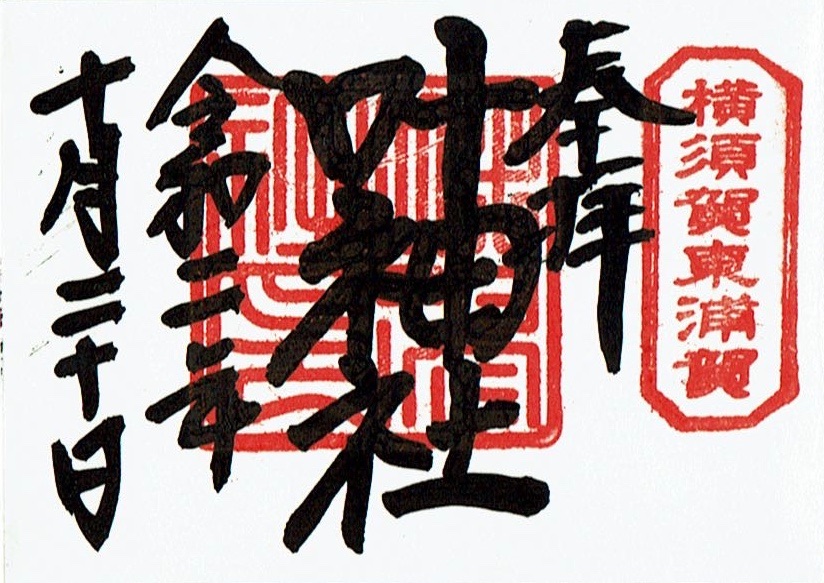 横須賀東浦賀
奉拝
叶神社
令和二年
十月二十日